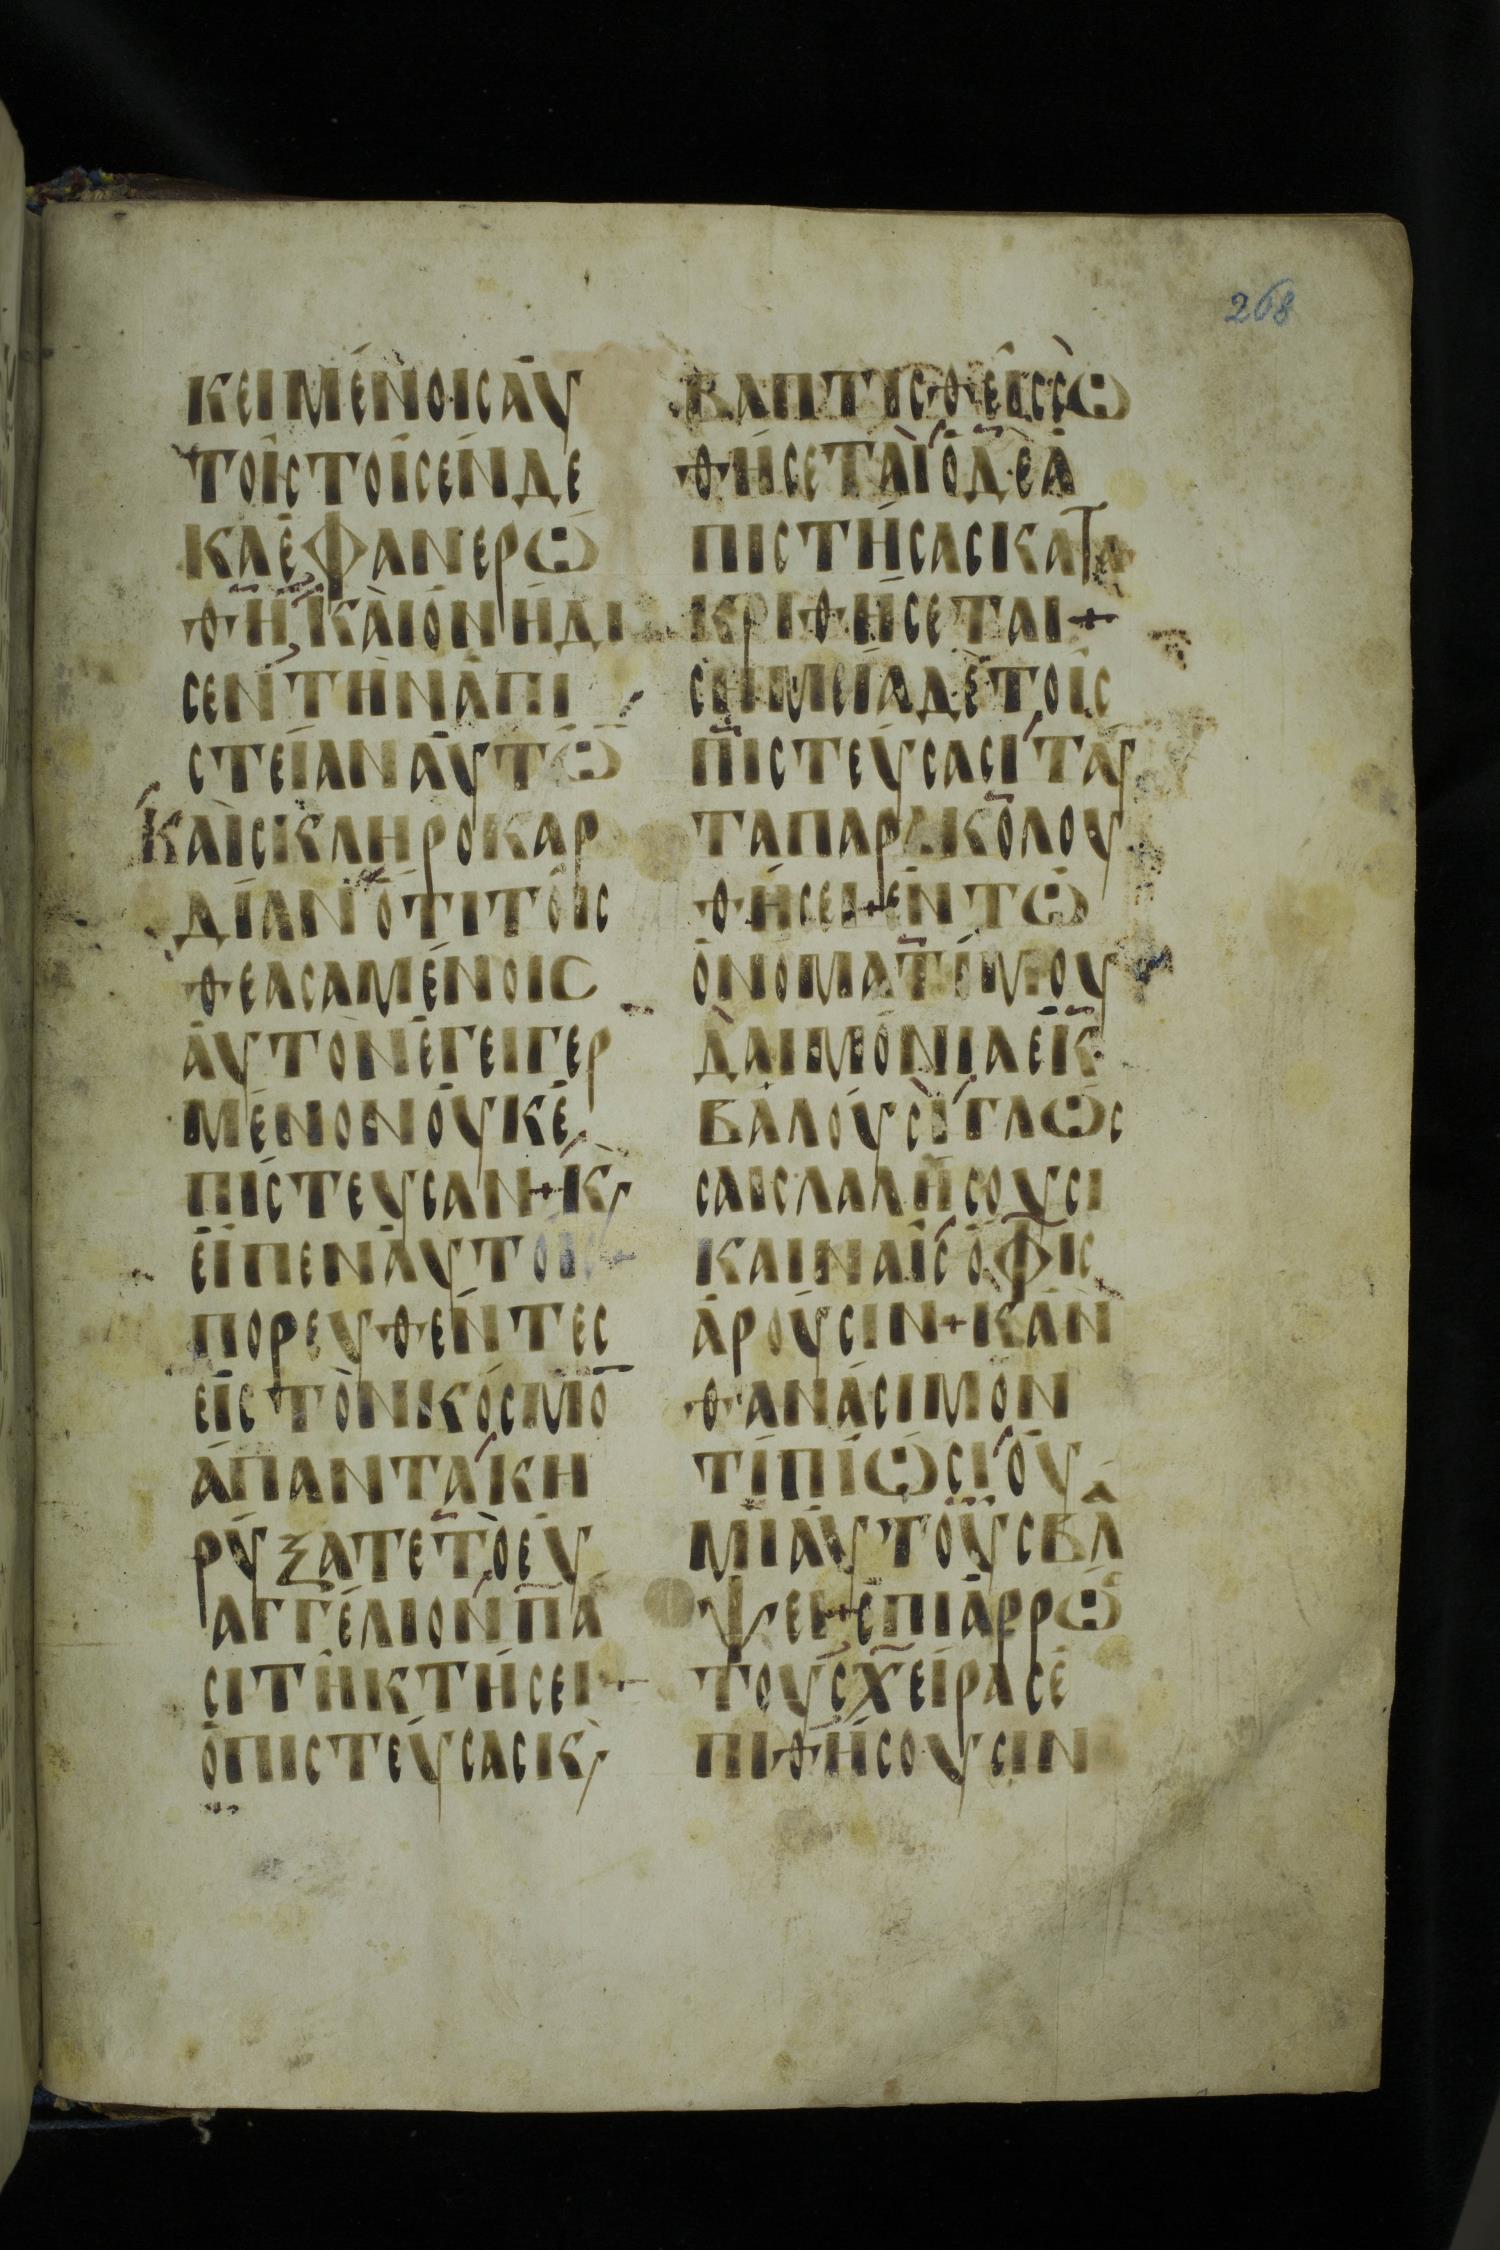 268
κειμένοις αυ
τοῖς τοῖς ένδε
κα εφανερώ
θη και ονήδι
σεν την απι
στείαν αυτῶ
Και σκληροκαρ
δίαν ότι τοῖς
θεασαμένοις
αυτὸν εγειγερ
μένον ουκ ε
πίστευσαν + Κ,
εἶπεν αυτοῖς
πορευθέντες
εις τὸν κόσμο̄
άπαντα κη
ρύξατε τὸ ευ
αγγέλιον πά
σι τῆ κτήσει +
ὁ πιστεύσας κ,
βαπτισθεὶς σω
θήσεται ὁ δε α
πιστήσας κατα
κριθήσεται +
σημεία δὲ τοῖς
πιστεύσασι ταυ
τα παρακολου
θήσει + εν τῶ
ονόματί μου
δαιμόνια εκ
βάλουσι γλωσ
σαις λαλήσουσι
καιναῖς όφις
αρούσιν + κάν
θανάσιμον
τί πίωσι ου
μὶ αυτοὺς βλα
ψει + επὶ αρρώ
τους χείρας ε
πιθήσουσιν